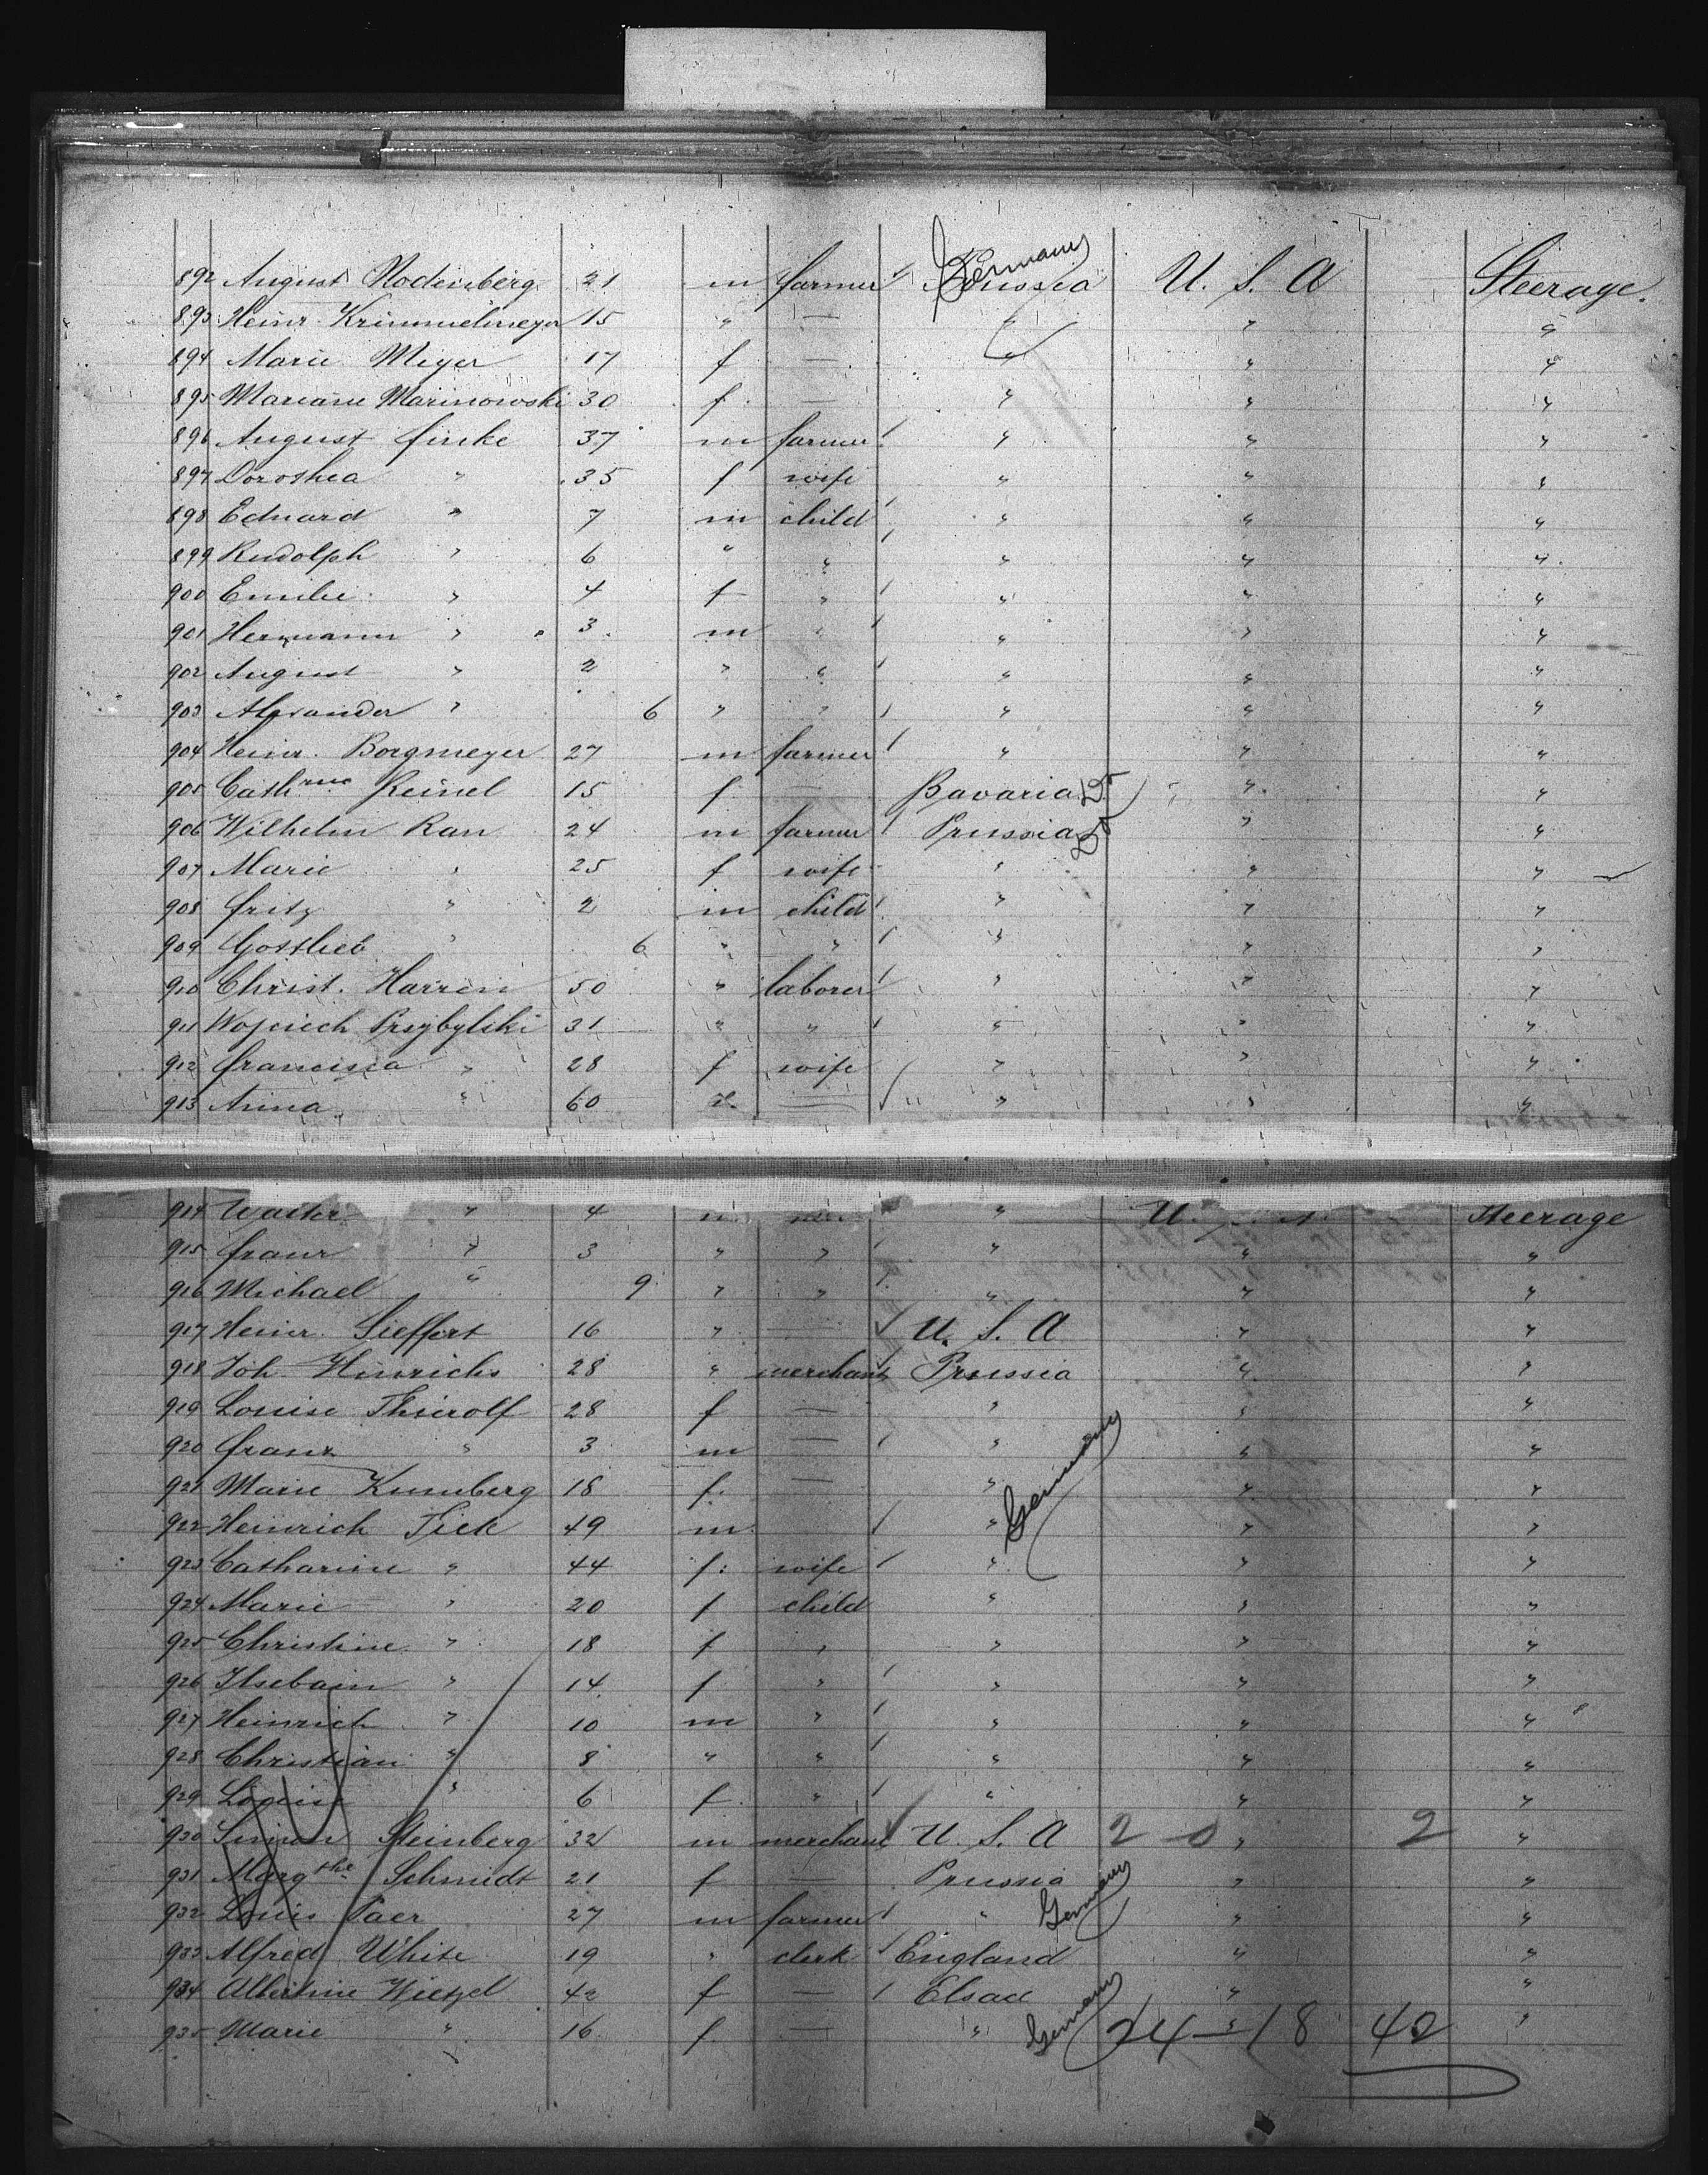 Germany
892 August Rodenberg 21 m farmer Prussia U. S. A Steerage.
893 Heinr. Krümmelmeyer 15 " — " " "
894 Marie Meyer 17 f — " " "
895 Mariane Marinowski 30 f — " " "
896 August Finke 37 m farmer " " "
897 Dorothea " 35 f wife " " "
898 Eduard " 7 m child " " "
899 Rudolph " 6 " " " " "
900 Emilie " 4 f " " " "
901 Hermann " 3 m " " " "
902 August " 2 " " " " "
903 Alexander " 6 " " " " "
904 Heinr. Borgmeyer 27 m farmer " " "
905 Cathrine Reinel 15 f — Bavaria Do " "
906 Wilhelm Rau 24 m farmer Prussia Do " "
907 Marie " 25 f wife " " "
908 Fritz " 2 m child " " "
909 Gottlieb " 6 " " " " "
910 Christ. Harren 50 " laborer " " "
911 Wojciech Przybylski 31 " " " " "
912 Francisca " 28 f wife " " "
913 Anna " 60 — " " "
914 " 4 " U. Steerage
915 Franz " 3 " " " " "
916 Michael " 9 " " " " "
917 Heinr. Sieffert 16 " — U. S. A " "
918 Joh. Hinrichs 28 " merchant Prussia " "
919 Louise Thierolf 28 f — " " "
920 Franz " 3 m — " " "
921 Marie Kunberg 18 f. — " Germany " "
922 Heinrich Tiek 49 m " " "
923 Catharine " 44 f. wife " " "
924 Marie " 20 f child " " "
925 Christine " 18 f " " " "
926 Ilsebein " 14 f " " " "
927 Heinrich " 10 m " " " "
928 Christian " 8 " " " " "
929 Louise " 6 f " " " "
930 Simon Steinberg 32 m merchant U. S. A 2 0 " 2 "
931 Margthe Schmidt 21 f — Prussia " "
932 Louis Paer 27 m farmer " Germany " "
933 Alfred White 19 " clerk England " "
934 Albertine Wietzel 42 f — Elsace " "
935 Marie " 16 f — " Germany 24 — 18 42 "